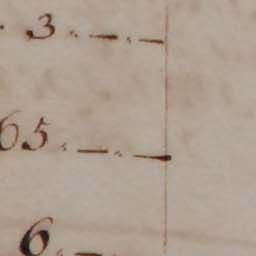 3 . — . —
65 . — . —
6 . —